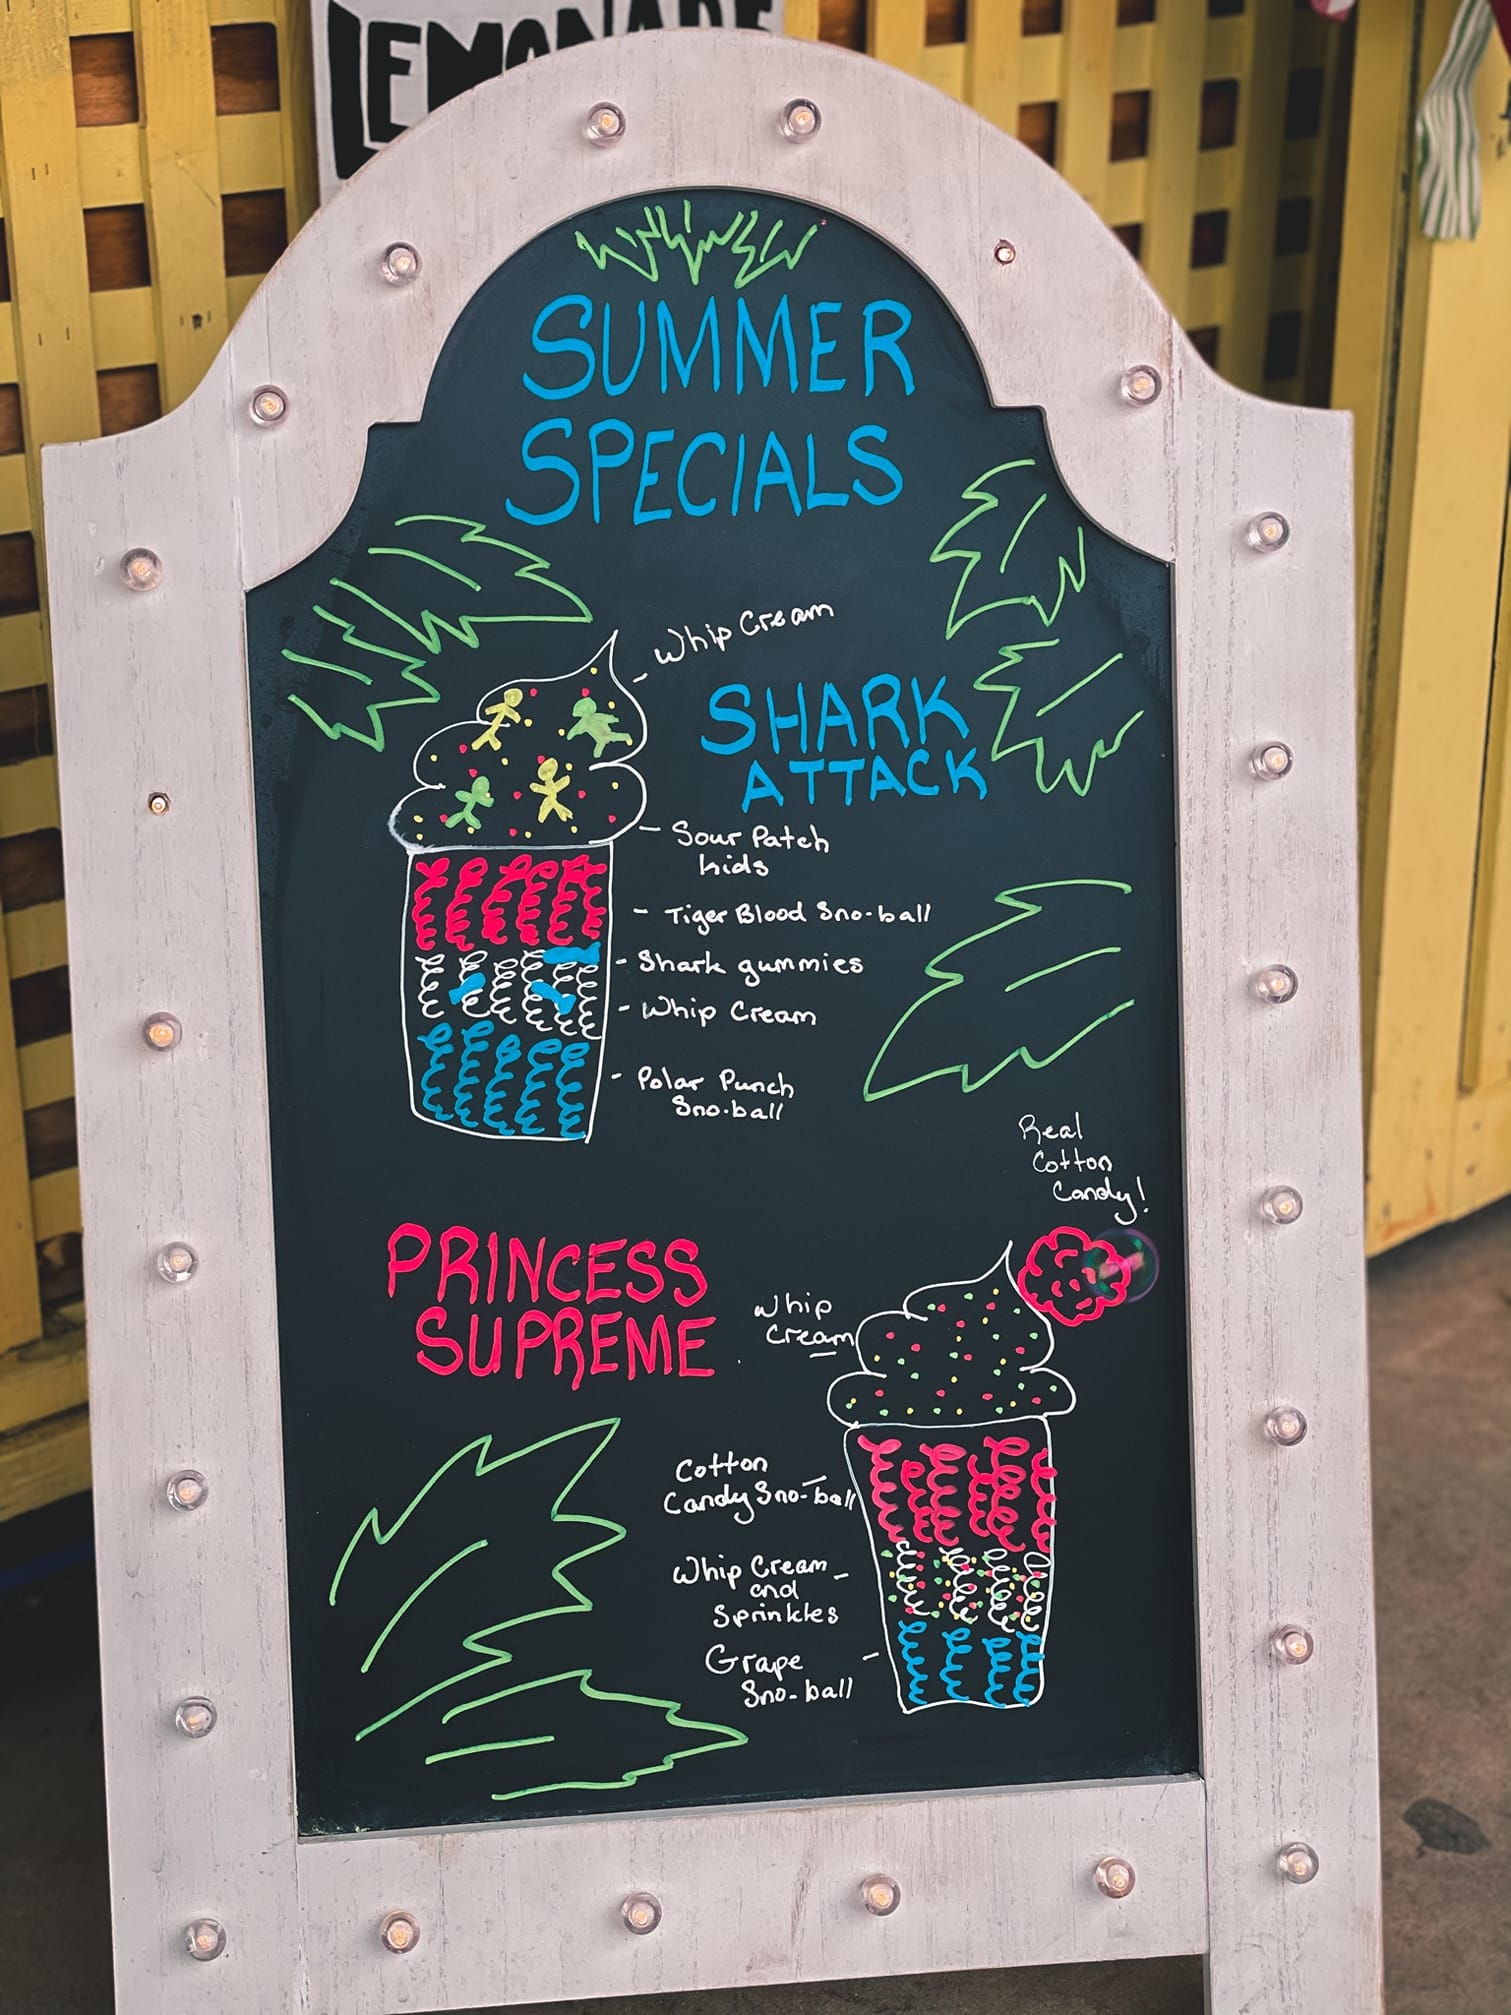 LEMONADE
SUMMER
SPECIALS
Whip Cream
SHARK
ATTACK
- Sour Patch
Kids
- Tiger Blood Sno-ball
- Shark gummies
- Whip Cream
- Polar Punch
Sno-ball
Real
Cotton
Candy!
PRINCESS
SUPREME
Whip
Cream
Cotton
Candy Sno-ball
Whip Cream -
and
Sprinkles
Grape -
Sno-ball